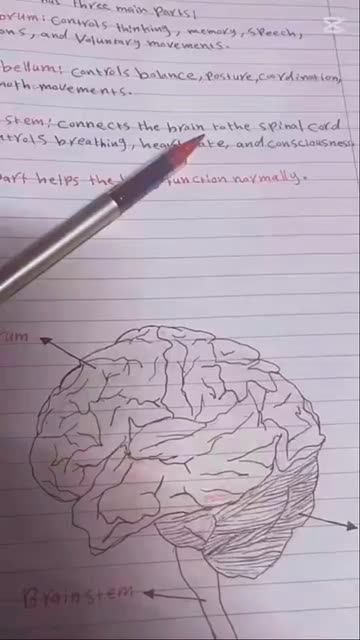 has three main parts:
orum: controls thinking, memory, speech,
ons, and voluntary movements.
bellum: controls balance, posture, coordination,
ooth movements.
stem: connects the brain to the spinal cord
ntrols breathing, heart rate, and consciousness
art helps the function normally.
um
Brainstem
CapCut